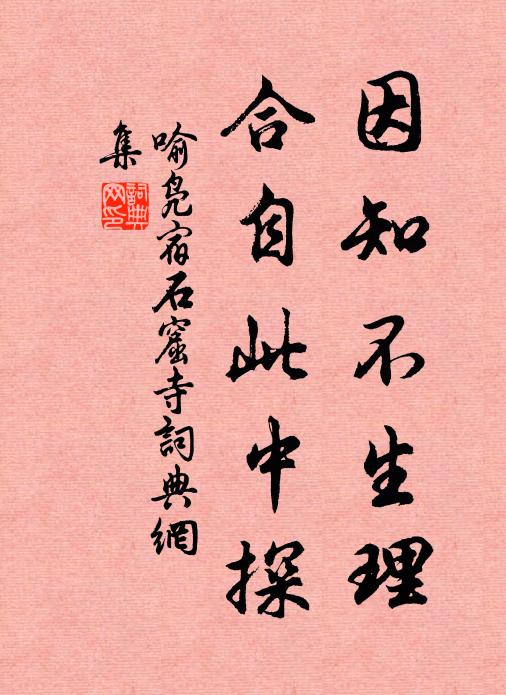 因知不生理
合自此中探
喻凫宿石窟寺詞典網
集
詞典
网印